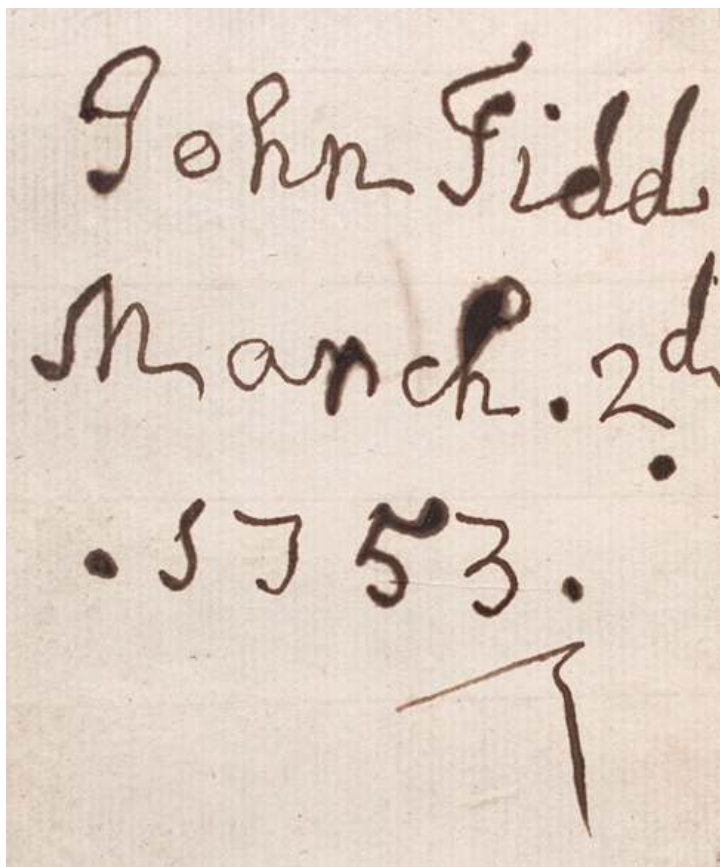 John Fidd
March. 2d.
.1753.